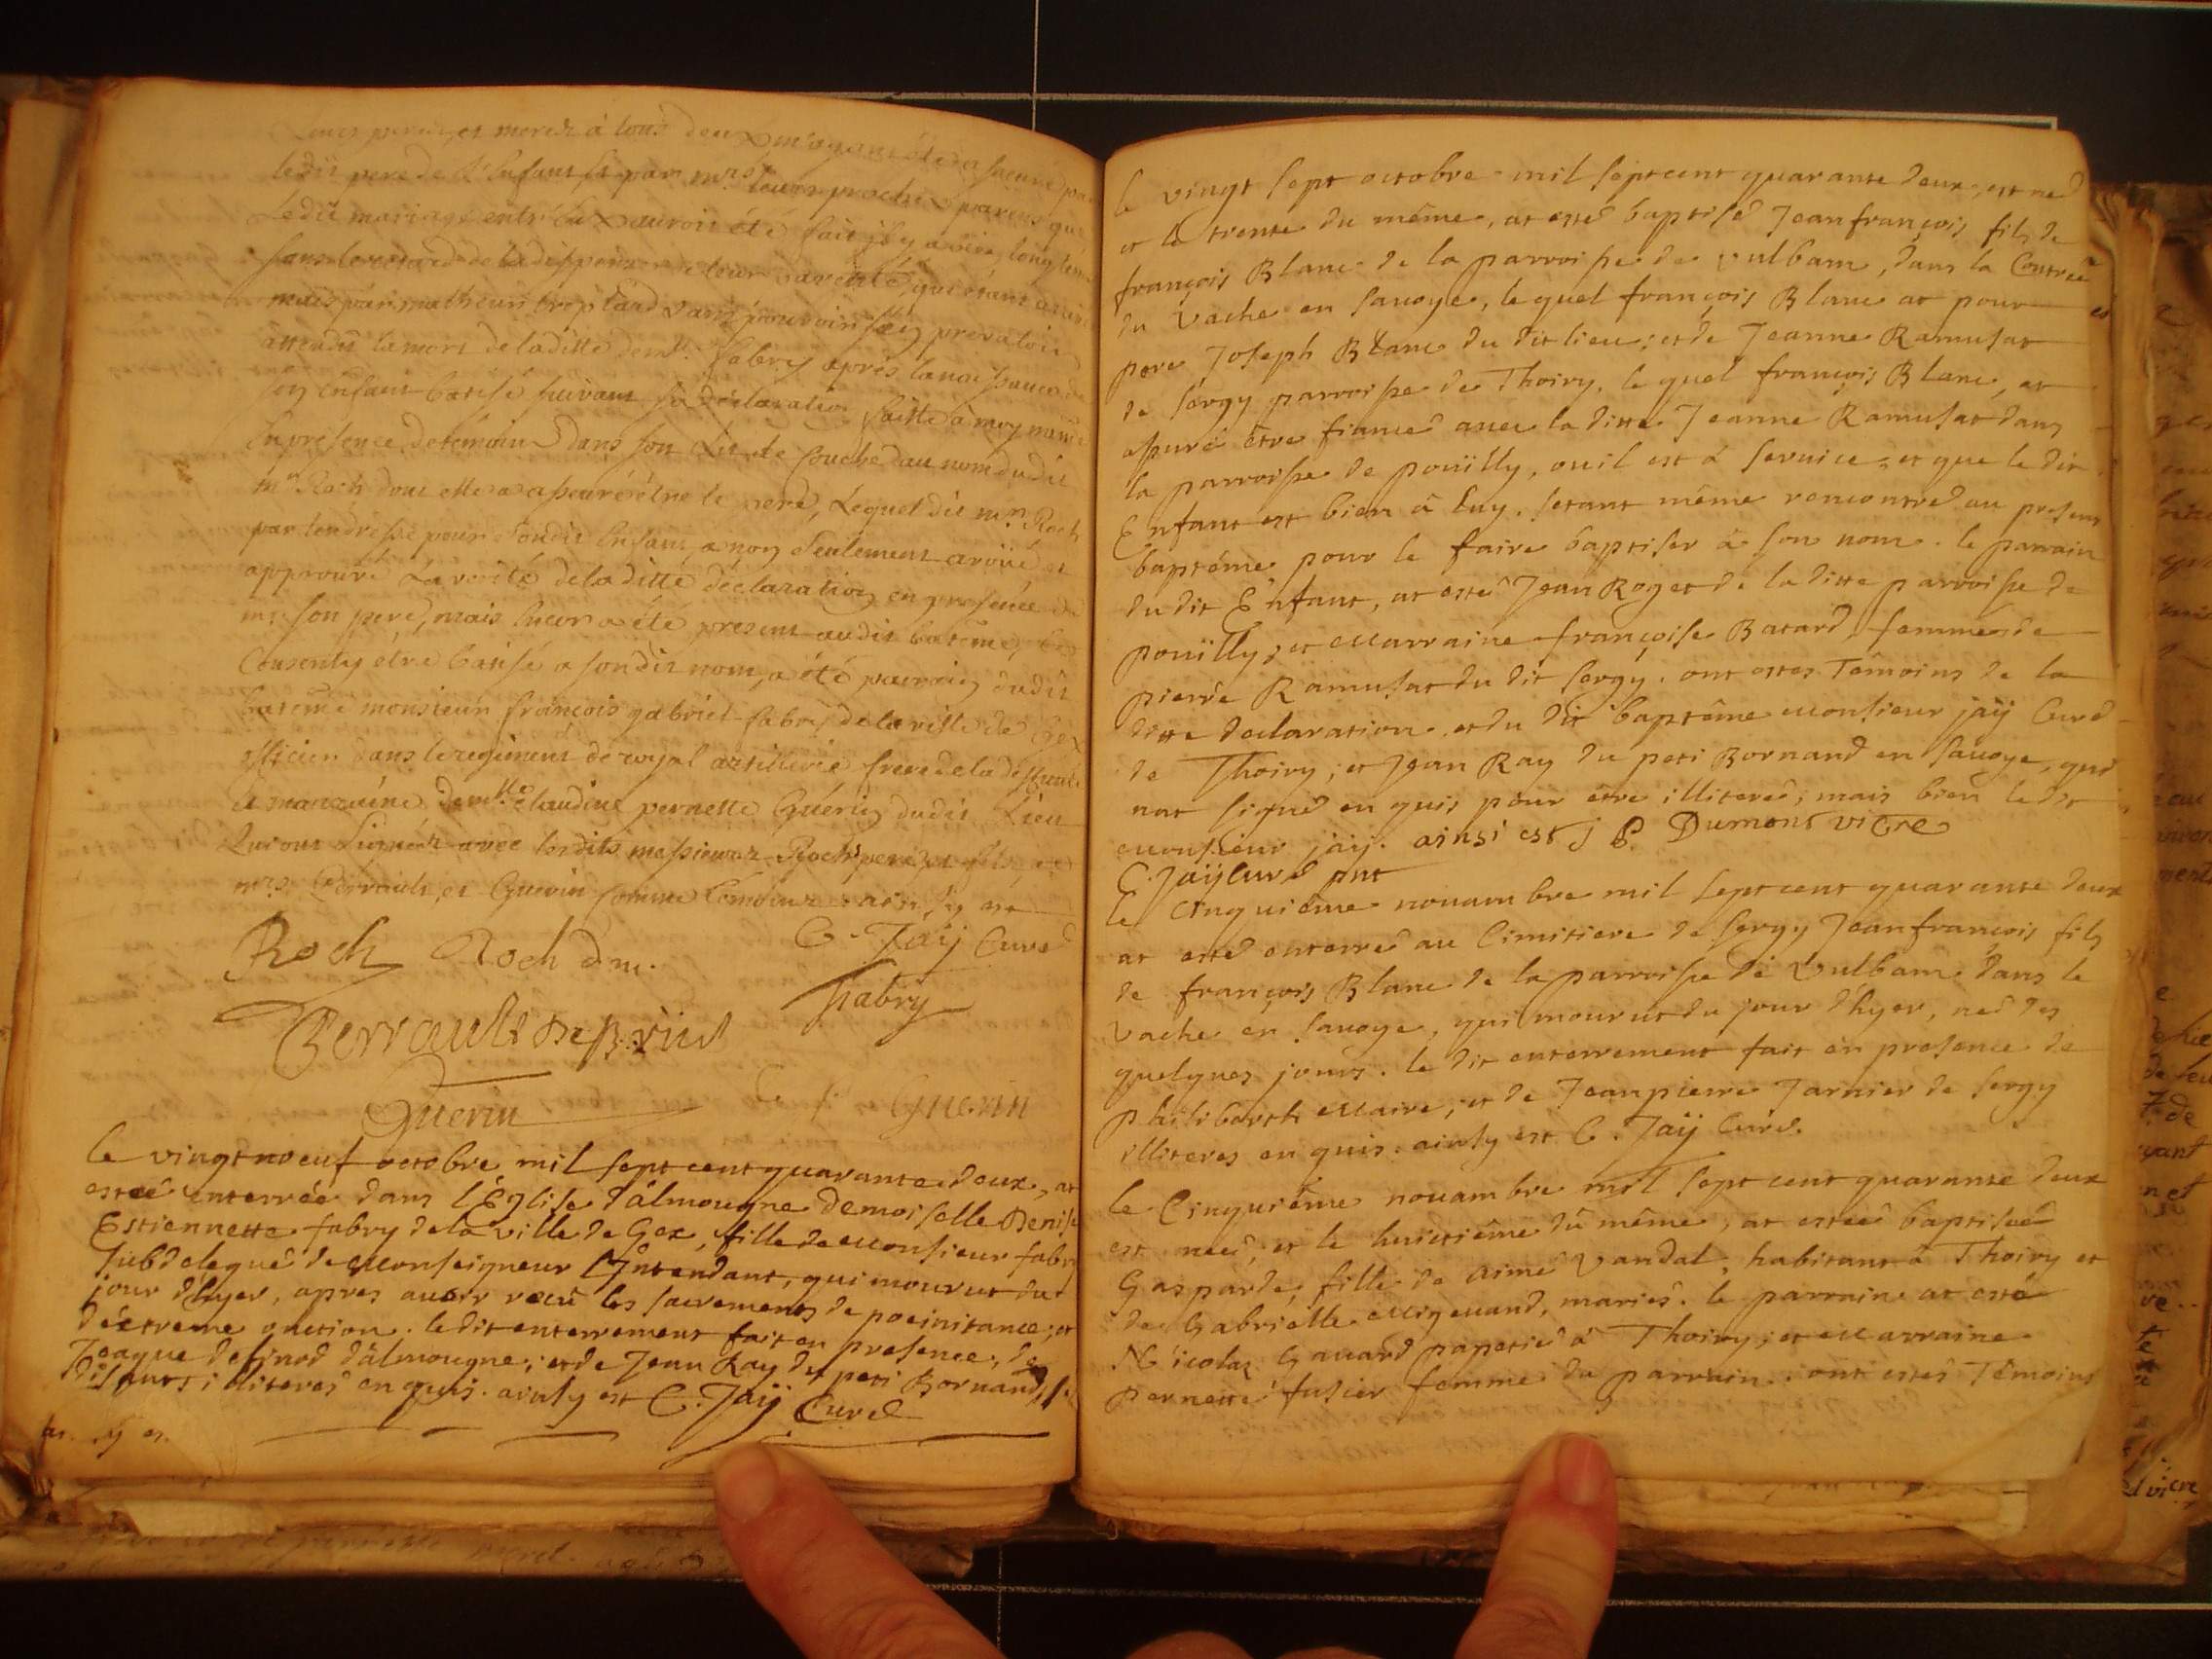 Leurs peres, et meres à tous deux m'ayant été assuré par
ledit pere de l'Enfant et par mrs leurs proches parens que
Ledit mariage entr'eux auroit été fait il y a long tems
sans le retard de la dispense de leur parenté, qui étant arrivé
mais par malheur trop tard sans pouvoir s'en prevaloir
attendu la mort de laditte demle. fabry après la naissance de
son enfant batisé suivant sa déclaration faitte à moy
En présence de témoins dans son Lit de couche au nom dudit
mr Roch dont elle a asseuré être le pere, Lequel dit mr. Roch
par tendresse pour sondit Enfant, a non seulement avoüé et
approuvé La verité de laditte déclaration en présence de
mr son pere, mais encor a été present audit batême, et
Consenty être batisé a sondit nom, a été parrain dudit
batême monsieur françois gabriel fabry de la ville de Gex
officier dans le regiment de royal artillerie frere de la deffunte
Et marraine demlle claudine pernette Guérin dudit Lieu
Qui ont Signéz avec lesdits messieurs Roch pere et fils, et
mrs. Perrault, et Guerin comme témoins ainsy est
Roch Roch dm. C. Jaÿ Curé
fabry
Perrault De
Guerin Guerin
Le vingt noeuf octobre mil sept cent quarante deux, at
esteé enterrée dans l'Eglise d'âlmougne Demoiselle Denise
Estiennette fabry de la ville de Gex, fille de Monsieur fabry
subdelegué de Monseigneur l'Intendant, qui mourut du
jour d'hyer, apres avoir recu les sacrements de poeinitance; et
d'éxtreme onction. le dit enterrement fait en presence, de
Jeaque definod d'âlmougne; et de Jean Ray du peti Bornand,
illiteres en quis. ainsy est C. Jaÿ Curé
le vingt sept octobre mil sept cent quarante deux, est né
et le trente du même, at esté baptisé Jean françois fils de
françois Blanc de la parroisse de vulbam, dans la Contreé
du Vache en savoye, le quel françois Blanc at pour
pere Joseph Blanc du dit lieu; et de Jeanne Ramusat
de sérgy parroisse de Thoiry. le quel françois Blanc, at
assuré être fiancé avec la ditte Jeanne Ramusat dans
la parroisse de poüilly, ou il est à service, et que le dit
Enfant est bien à luy. setant même rencontré au present
baptéme pour le faire baptiser à son nom. le parrain
du dit Enfant, at esté Jean Roget de la ditte parroisse de
poüilly; et Marraine françoise Batard femme de
pierre Ramusat du dit sergy. ont estes Témoins de la
ditte declaration et du dit baptême Monsieur jaÿ Curé
de Thoiry; et Jean Ray du peti Bornand en savoye, qui
nat signé en quis pour etre illiteré; mais bien ledit
Monsieur jaÿ. ainsi est J B. Dumont vicre
C. Jaÿ Curé pnt
Le cinquiême novambre mil sept cent quarante deux
at esté enterré au Cimitiere de sergy Jean françois fils
de françois Blanc de la parroisse de Vulbam dans le
Vache en savoye, qui mourut du jour d'hyer, né des
quelques jours. le dit enterrement fait en presence de
philiberth Maire; et de Jean pierre Jarnier de sergy
illiteres en quis. ainsy est C. Jaÿ Curé.
le Cinquiême novambre mil sept cent quarante deux
est neé; et le huictiême du même, at esteé baptiseé
Gasparde, fille de aimé Vandal, habitant à Thoiry et
de Gabrielle Migevand, mariés. le parrain at esté
Nicolas Gavard papetié à Thoiry; et Marraine
pernette fusier femme du parrain. ont estés Témoins